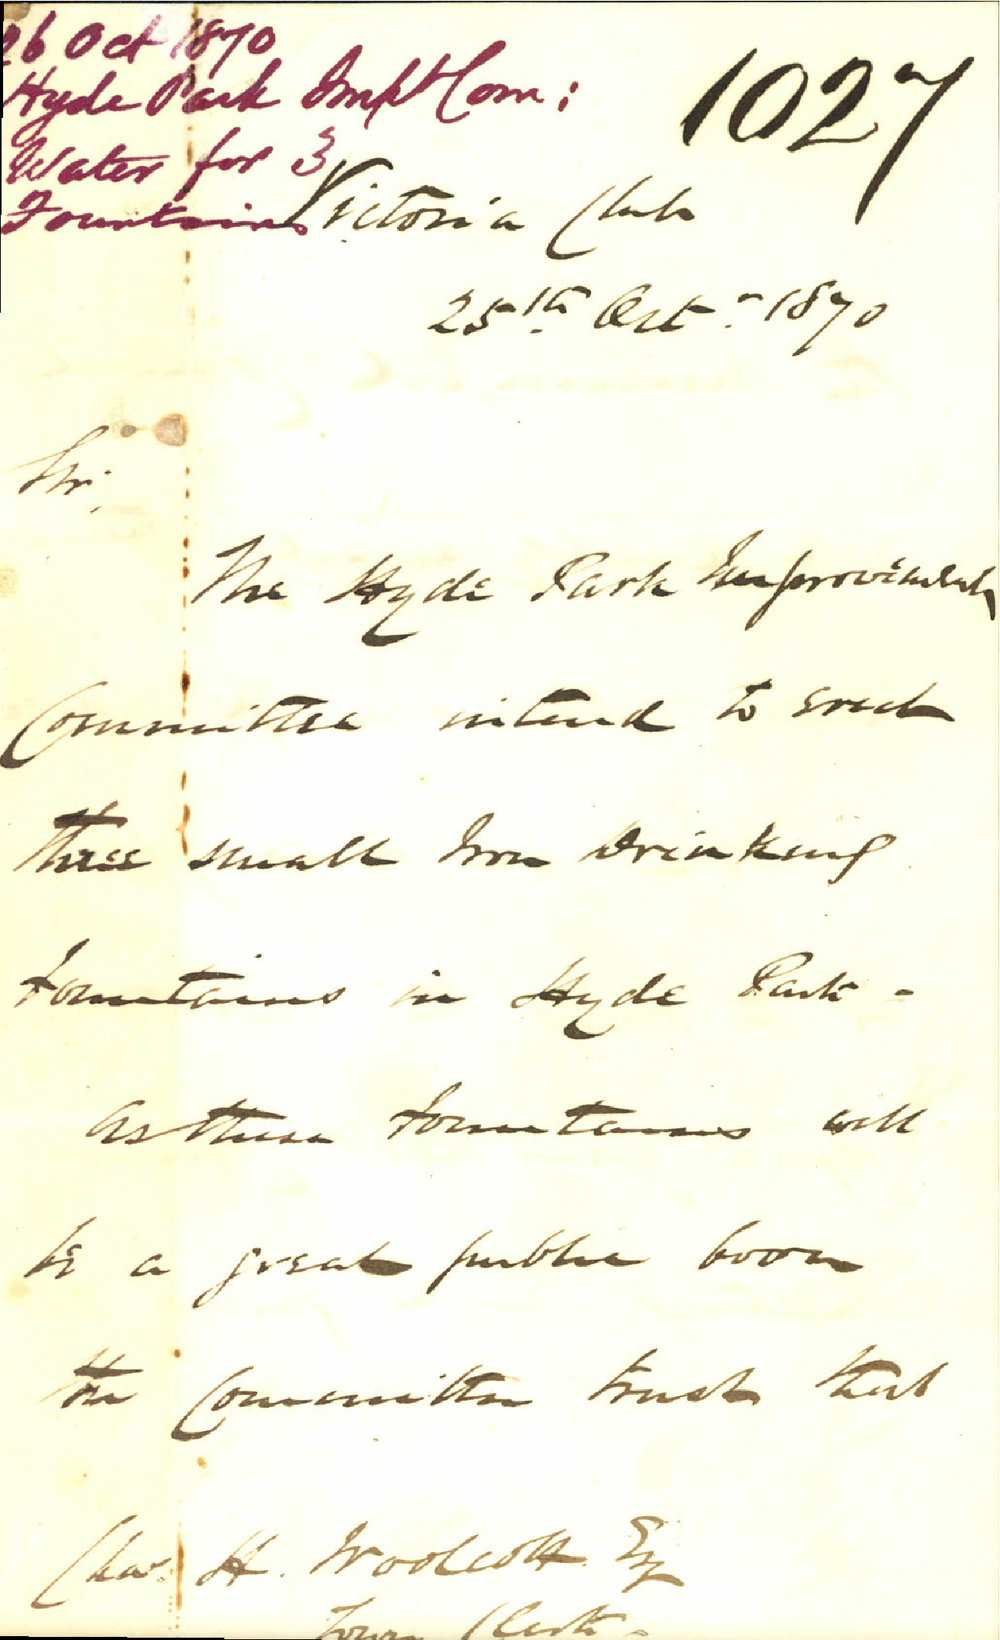 26 Oct 1870
Hyde Park Impt Com:
Water for 3
Fountains
1027
Victoria Club
25th Oct. 1870
Sir,
The Hyde Park Improvement
Committee intend to erect
three small Iron Drinking
Fountains in Hyde Park -
As these Fountains will
be a great public boon
the Committee trust that
Chas. H. Woolcott Esq
Town Clerk -